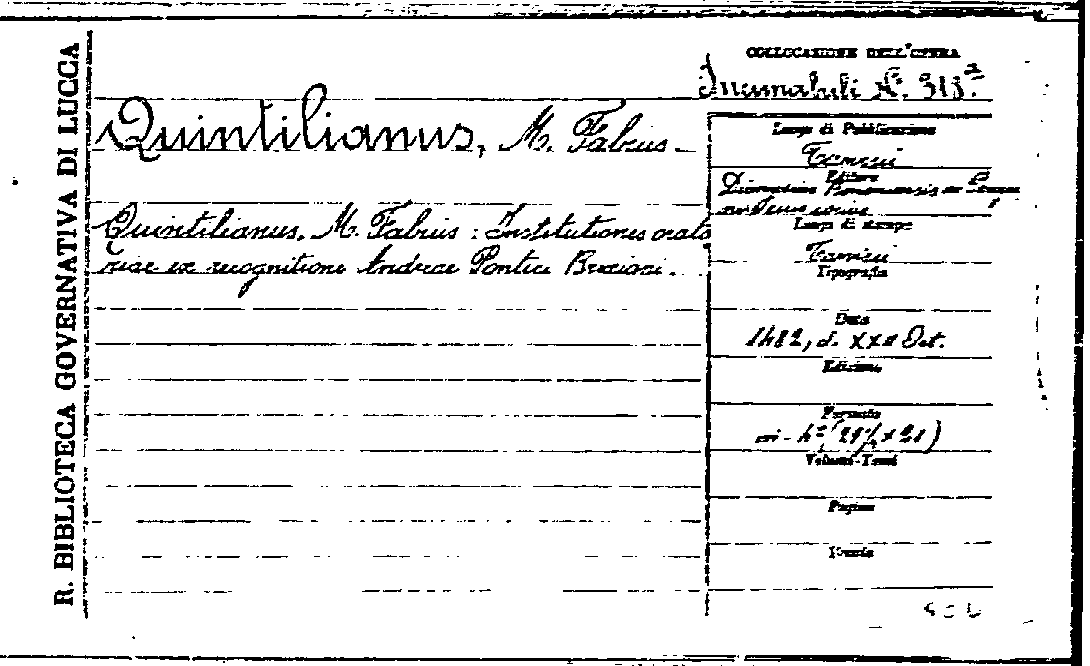 R. BIBLIOTECA GOVERNATIVA DI LUCCA
COLLOCAZIONE DELL'OPERA
Incunabuli N. 313.ª
Quintilianus, M. Fabius.
Quintilianus, M. Fabius: Institutiones orato
riae ex recognitione Andreae Pontici Brixiani.
Luogo di Pubblicazione
Tarvisii
Editore
Dionysius Bononiensis
Luogo di stampa
Tarvisii
Tipografia
Data
1482, d. XXII Oct.
Edizione
Formato
in-4º
Volume-Tomi
Pagine